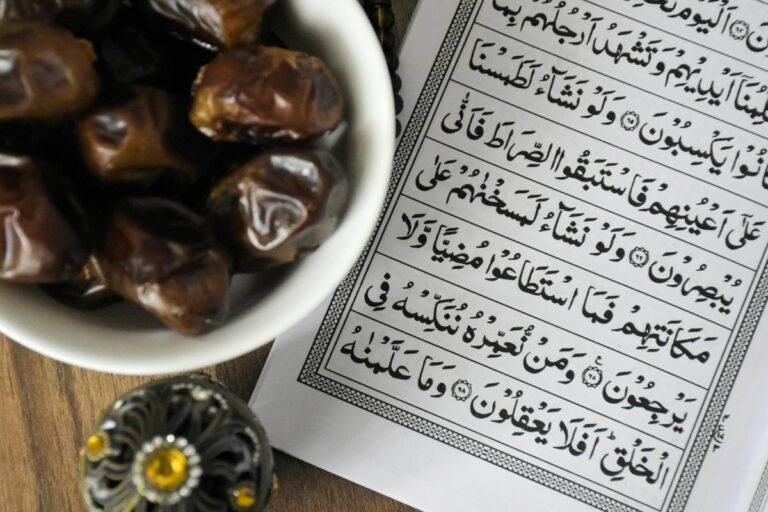 اَلْيَوْمَ
اَيْدِيْهِمْ وَتَشْهَدُ اَرْجُلُهُمْ بِمَا
كَانُوْا يَكْسِبُوْنَ ۝٦٥ وَلَوْ نَشَآءُ لَطَمَسْنَا
عَلٰٓى اَعْيُنِهِمْ فَاسْتَبَقُوا الصِّرَاطَ فَاَنّٰى
يُبْصِرُوْنَ ۝٦٦ وَلَوْ نَشَآءُ لَمَسَخْنٰهُمْ عَلٰى
مَكَانَتِهِمْ فَمَا اسْتَطَاعُوْا مُضِيًّا وَّلَا
يَرْجِعُوْنَ ۝٦٧ وَمَنْ نُّعَمِّرْهُ نُنَكِّسْهُ فِى
الْخَلْقِ ؕ اَفَلَا يَعْقِلُوْنَ ۝٦٨ وَمَا عَلَّمْنٰهُ